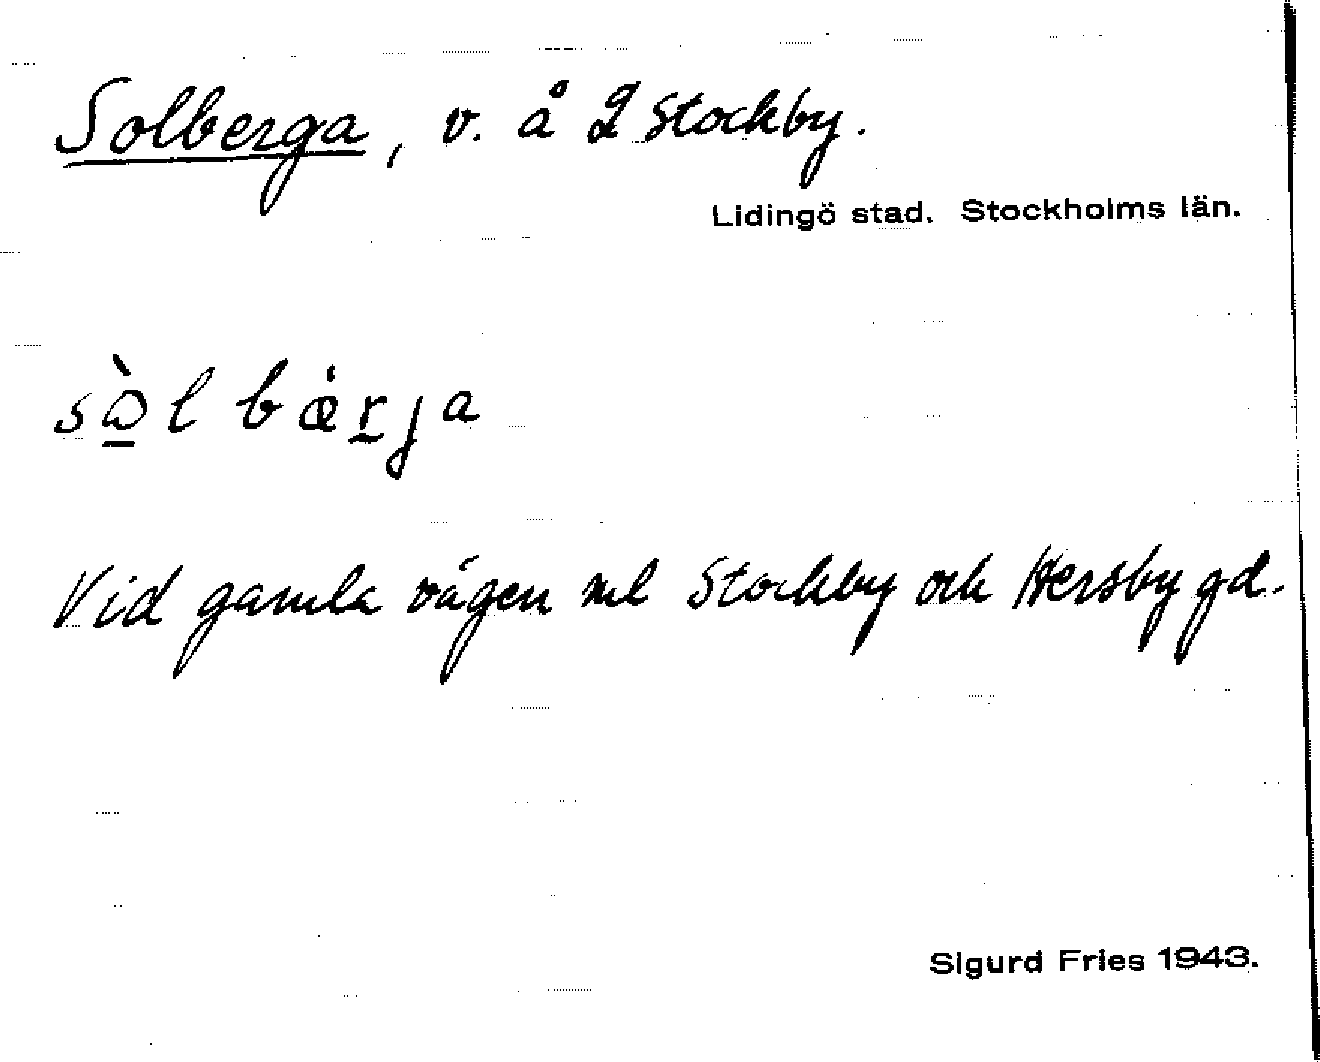 Solberga, v. å 2 Stockby.
Lidingö stad. Stockholms län.
sò̲l bǽr̲ja
Vid gamla vägen ml Stockby och Hersby gd.
Sigurd Fries 1943.